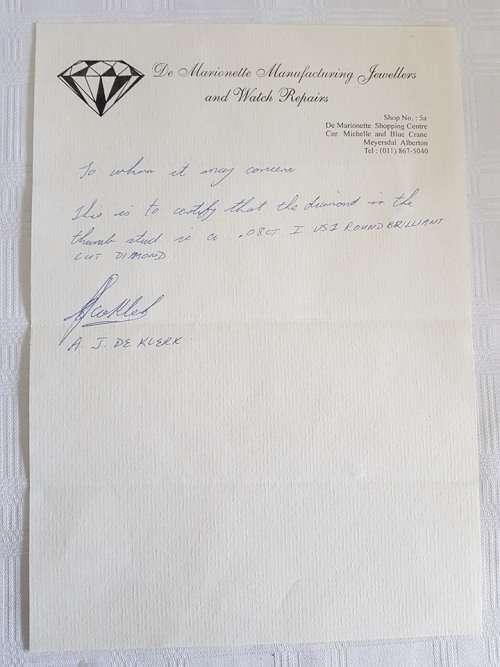 De Marionette Manufacturing Jewellers
and Watch Repairs
Shop No. : 5a
De Marionette Shopping Centre
Cnr. Michelle and Blue Crane
Meyersdal Alberton
Tel : (011) 867-5040
To whom it may concern
This is to certify that the diamond in the
thumb stud is a .08ct I VS1 ROUND BRILLIANT
CUT DIAMOND
A. J. DE KLERK